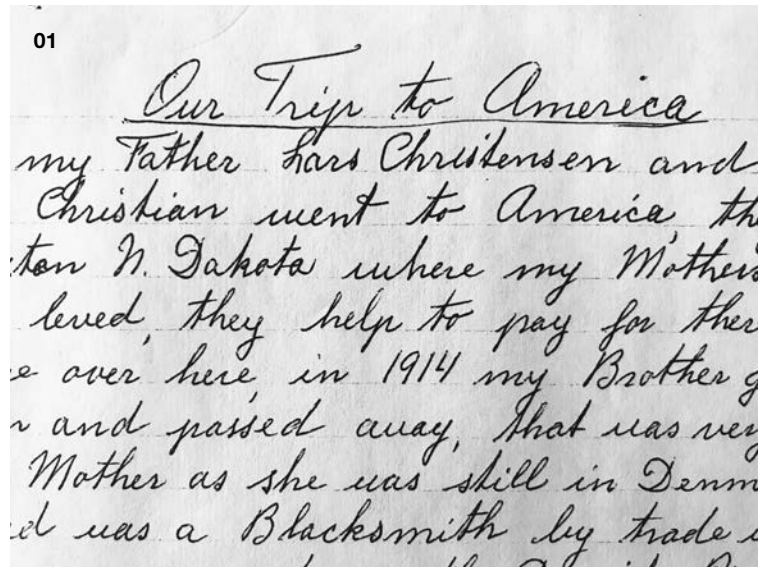 01
Our Trip to America
my Father Lars Christensen and
Christian went to America, th
ton N. Dakota where my Mothers
leved, they help to pay for ther
e over here, in 1914 my Brother g
n and passed away, that was very
Mother as she was still in Denm
d was a Blacksmith by trade